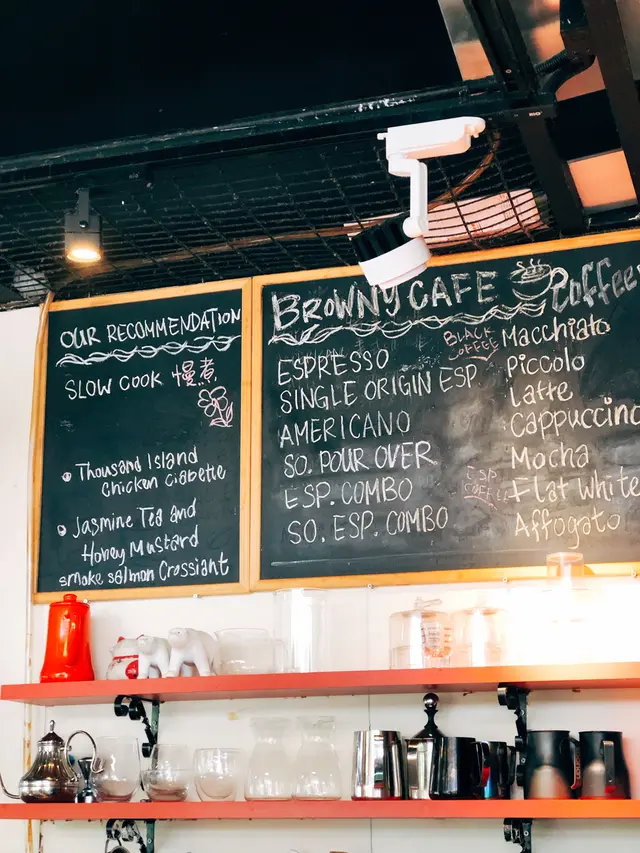 OUR RECOMMENDATION
SLOW COOK 慢煮
Thousand Island
Chicken Ciabette
Jasmine Tea and
Honey Mustard
smoke salmon Crossiant
BROWNY CAFE
ESPRESSO
SINGLE ORIGIN ESP.
AMERICANO
SO. POUR OVER
ESP. COMBO
SO. ESP. COMBO
BLACK
COFFEE
ESP
COFFEE
Coffee
Macchiato
Piccolo
Latte
Cappuccino
Mocha
Flat White
Affogato